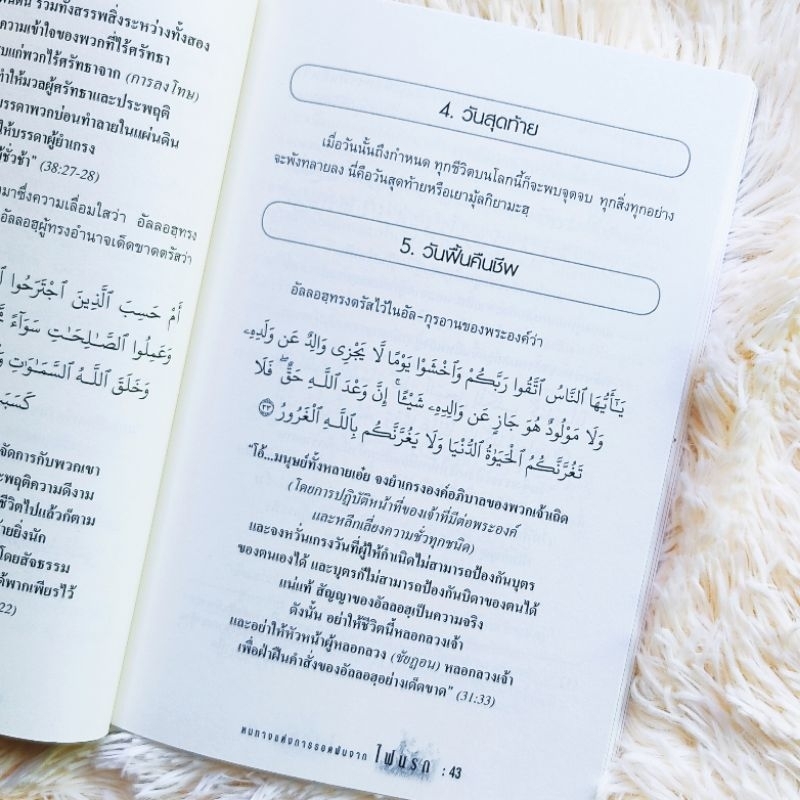 นดิน รวมทั้งสรรพสิ่งระหว่างทั้งสอง
ความเข้าใจของพวกที่ไร้ศรัทธา
แก่พวกไร้ศรัทธาจาก (การลงโทษ)
ทำให้มวลผู้ศรัทธาและประพฤติ
บรรดาพวกบ่อนทำลายในแผ่นดิน
ให้บรรดาผู้ยำเกรง
ชั่วช้า" (38:27-28)
มาซึ่งความเลื่อมใสว่า อัลลอฮฺทรง
อัลลอฮฺผู้ทรงอำนาจเด็ดขาดตรัสว่า
أَمْ حَسِبَ ٱلَّذِينَ ٱجْتَرَحُوا۟
وَعَمِلُوا۟ ٱلصَّـٰلِحَـٰتِ سَوَآءً
وَخَلَقَ ٱللَّهُ ٱلسَّمَـٰوَٰتِ
كَسَبَ
จัดการกับพวกเขา
ประพฤติความดีงาม
ชีวิตไปแล้วก็ตาม
ยิ่งนัก
โดยสัจธรรม
ได้พากเพียรไว้
22)
4. วันสุดท้าย
เมื่อวันนั้นถึงกำหนด ทุกชีวิตบนโลกนี้ก็จะพบจุดจบ ทุกสิ่งทุกอย่าง
จะพังทลายลง นี่คือวันสุดท้ายหรือเยามุ้ลกิยามะฮฺ
5. วันฟื้นคืนชีพ
อัลลอฮฺทรงตรัสไว้ในอัล-กุรอานของพระองค์ว่า
يَـٰٓأَيُّهَا ٱلنَّاسُ ٱتَّقُوا۟ رَبَّكُمْ وَٱخْشَوْا۟ يَوْمًا لَّا يَجْزِى وَالِدٌ عَن وَلَدِهِۦ
وَلَا مَوْلُودٌ هُوَ جَازٍ عَن وَالِدِهِۦ شَيْـًٔا ۚ إِنَّ وَعْدَ ٱللَّهِ حَقٌّ ۖ فَلَا
تَغُرَّنَّكُمُ ٱلْحَيَوٰةُ ٱلدُّنْيَا وَلَا يَغُرَّنَّكُم بِٱللَّهِ ٱلْغَرُورُ ٣٣
"โอ้...มนุษย์ทั้งหลายเอ๋ย จงยำเกรงองค์อภิบาลของพวกเจ้าเถิด
(โดยการปฏิบัติหน้าที่ของเจ้าที่มีต่อพระองค์
และหลีกเลี่ยงความชั่วทุกชนิด)
และจงหวั่นเกรงวันที่ผู้ให้กำเนิดไม่สามารถป้องกันบุตร
ของตนเองได้ และบุตรก็ไม่สามารถป้องกันบิดาของตนได้
แน่แท้ สัญญาของอัลลอฮฺเป็นความจริง
ดังนั้น อย่าให้ชีวิตนี้หลอกลวงเจ้า
และอย่าให้หัวหน้าผู้หลอกลวง (ชัยฏอน) หลอกลวงเจ้า
เพื่อฝ่าฝืนคำสั่งของอัลลอฮฺอย่างเด็ดขาด" (31:33)
หนทางแห่งการรอดพ้นจาก ไฟนรก : 43